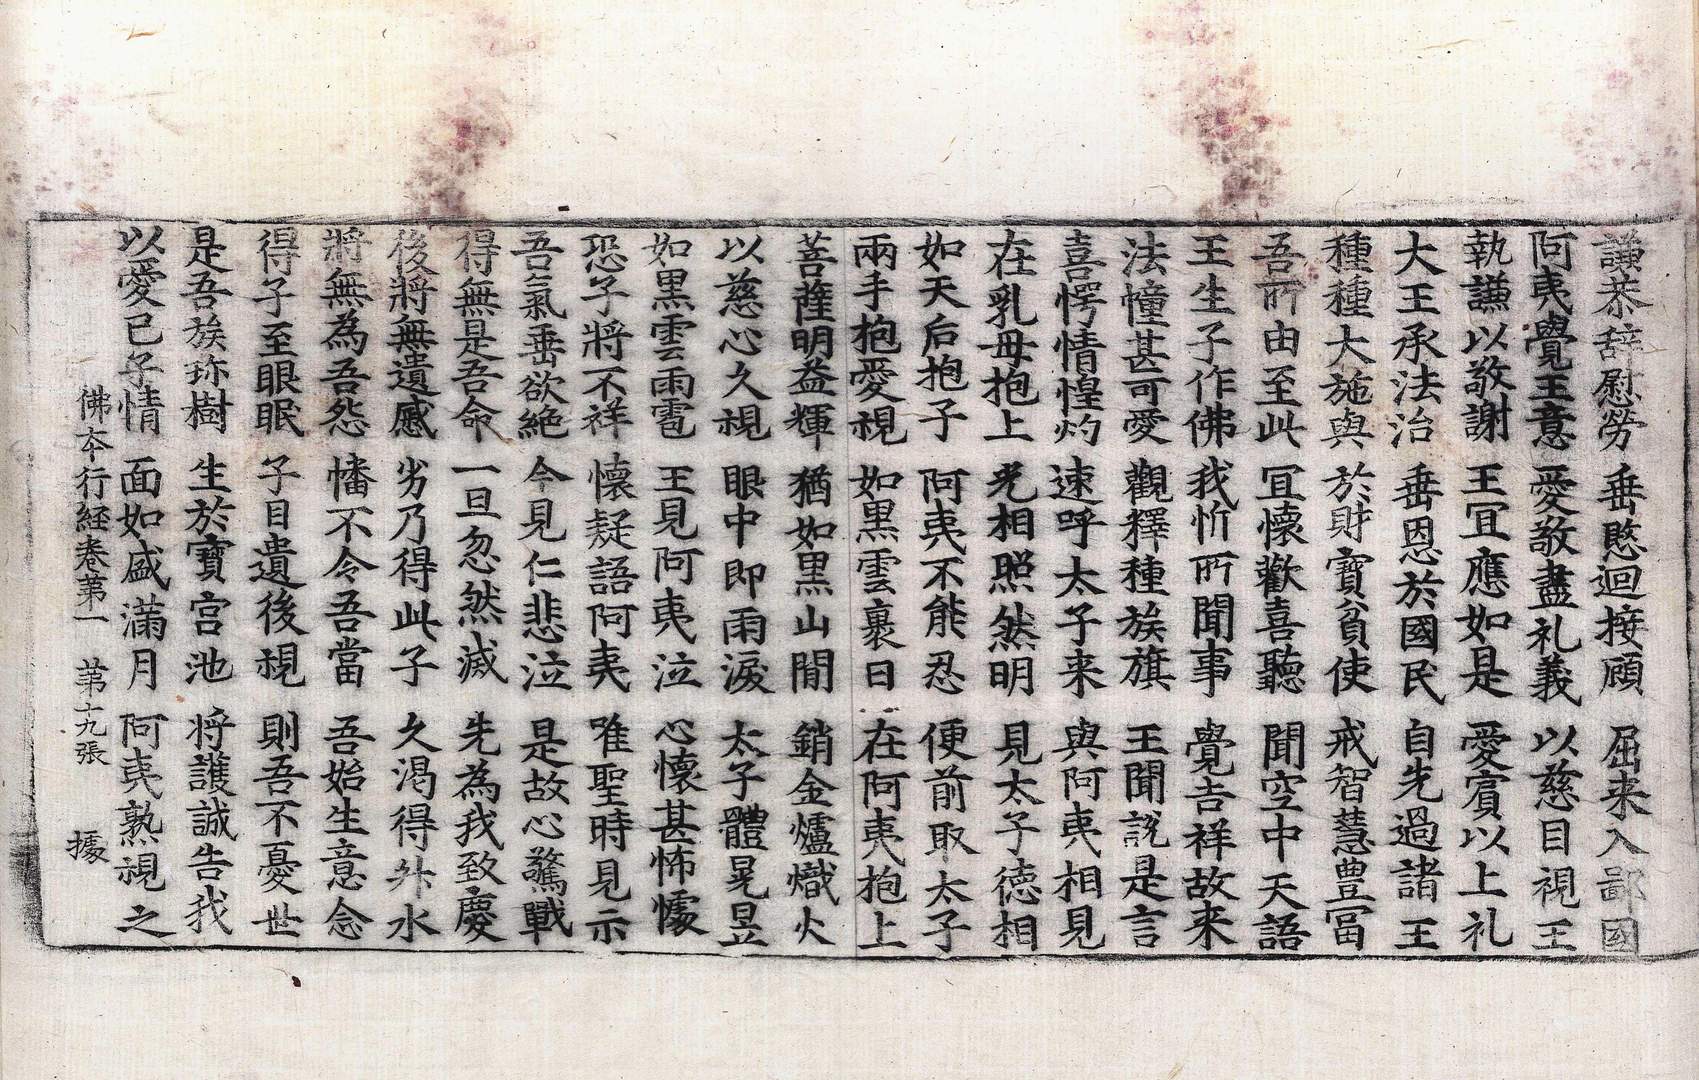 謙恭辞慰勞　垂愍迴接顧　屈来入鄙國
阿夷覺王意　愛敬盡礼義　以慈目視王
執謙以敬謝　王宜應如是　愛賓以上礼
大王承法治　垂恩於國民　自先過諸王
種種大施與　於財寶貧使　戒智慧豊冨
吾所由至此　冝懷歡喜聽　聞空中天語
王生子作佛　我忻所聞事　覺吉祥故来
法幢甚可愛　觀釋種族旗　王聞說是言
喜愕情惶灼　速呼太子来　與阿夷相見
在乳母抱上　光相照然明　見太子德相
如天后抱子　阿夷不能忍　便前取太子
兩手抱愛視　如黒雲裹日　在阿夷抱上
菩薩明益輝　猶如黒山間　銷金爐熾火
以慈心久視　眼中即雨淚　太子體晃昱
如黒雲雨雹　王見阿夷泣　心懷甚怖懅
恐子將不祥　懷疑語阿夷　唯聖時見示
吾氣垂欲絶　今見仁悲泣　是故心驚戰
得無是吾命　一旦忽然滅　先為我致慶
後將無遺慼　劣乃得此子　久渇得外水
將無為吾怨　幡不令吾當　吾始生意念
得子至眼眠　子目遺後視　則吾不憂世
是吾族珎樹　生於寶宮池　將護誠告我
以愛已子情　面如盛滿月　阿夷熟視之
佛本行経卷苐一　苐十九張　據